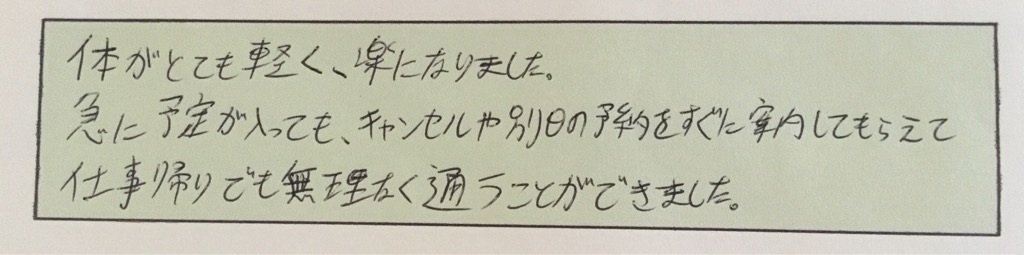 体がとても軽く、楽になりました。
急に予定が入っても、キャンセルや別日の予約をすぐに案内してもらえて
仕事帰りでも無理なく通うことができました。